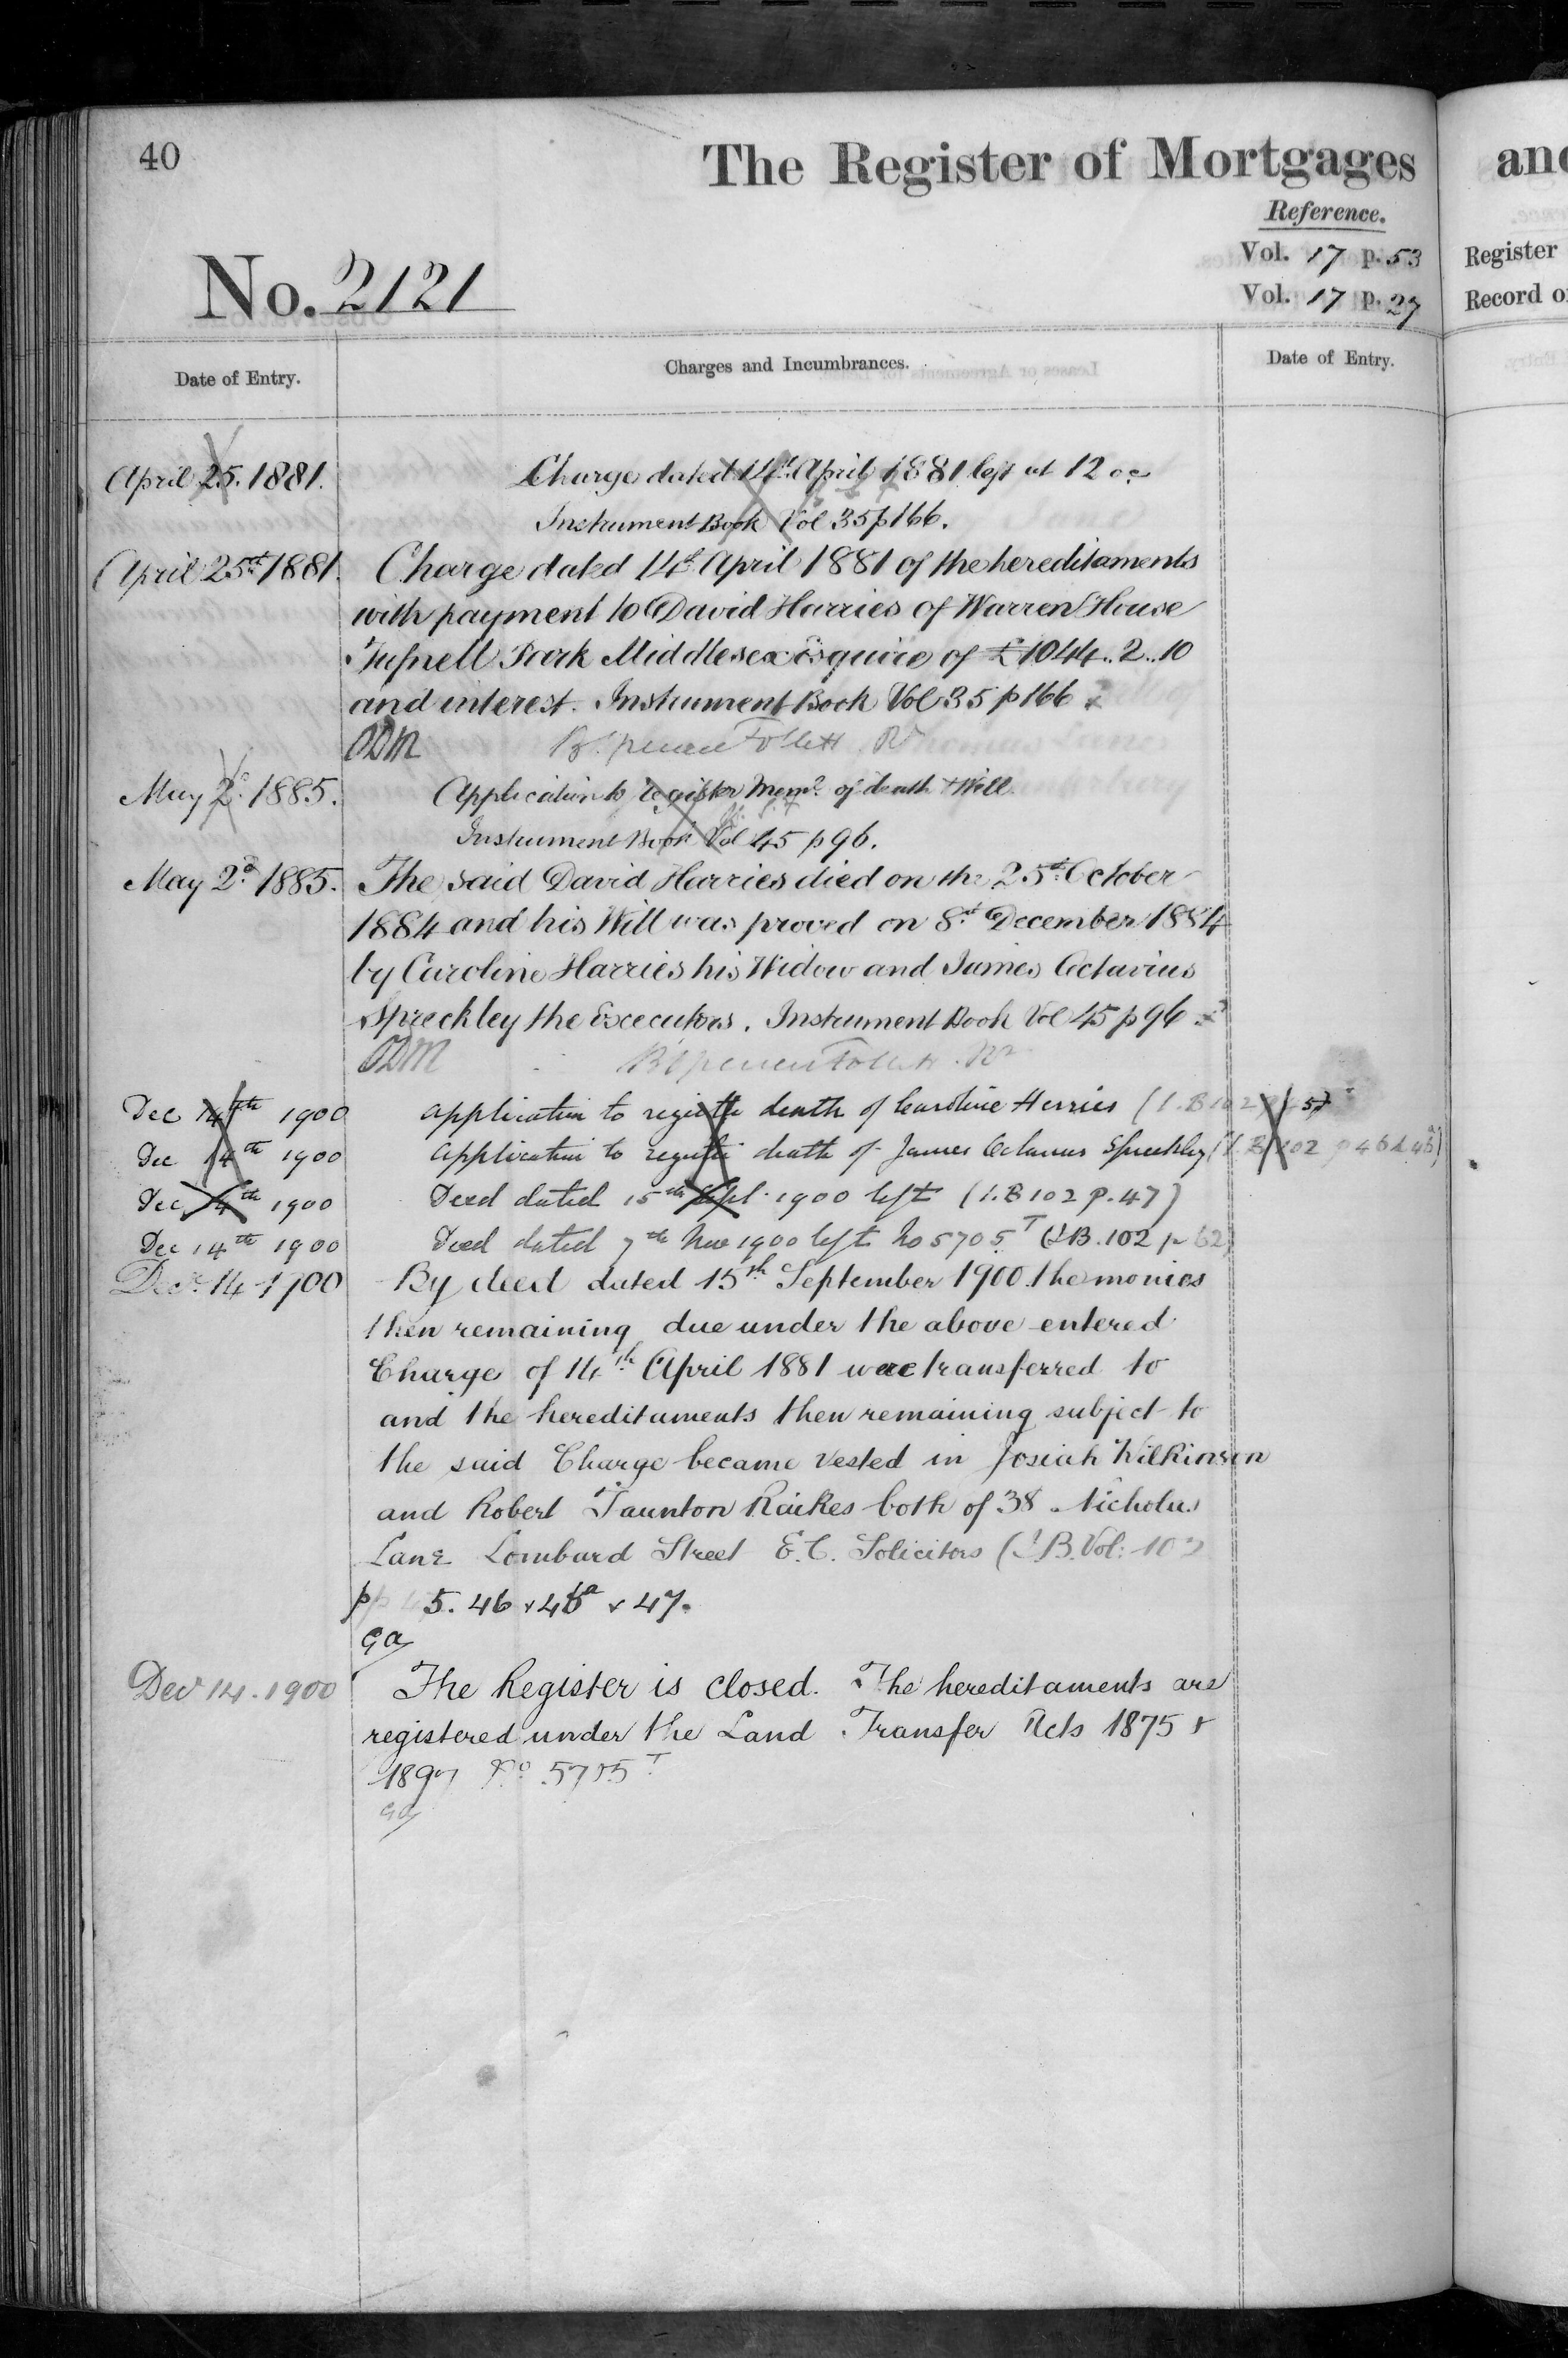 40
The Register of Mortgages
Reference.
No. 2121
Vol. 17 p. 53
Vol. 17 p. 27
Register
Record
Date of Entry.
Charges and Incumbrances.
Date of Entry.
April 25. 1881. Charge dated 14th April 1881 left at 12 oc
Instrument Book Vol 35 p 166.
April 25th 1881. Charge dated 14th April 1881 of the hereditaments
with payment to David Harries of Warren House
Tufnell Park Middlesex Esquire of £1044..2..10
and interest. Instrument Book Vol 35 p 166
ODM B. Spencer Follett Rr
May 2d. 1885. Application to register Memo. of death & Will
Instrument Book Vol 45 p 96.
May 2d 1885. The said David Harries died on the 25th October
1884 and his Will was proved on 8th December 1884
by Caroline Harries his Widow and James Octavius
Spreckley the Executors. Instrument Book Vol 45 p 96
ODM B Spencer Follett. Rr
Dec 14th 1900 Application to register death of Caroline Harries (I.B 102 p 45)
Dec 14th 1900 Application to register death of James Octavius Spreckley (I.B 102 p 46 & 46a)
Dec 14th 1900 Deed dated 15th Sept. 1900 left (I.B 102 p. 47)
Dec 14th 1900 Deed dated 7th Nov 1900 left No 5705T (I.B. 102 p 62)
Decr. 14 1900 By deed dated 15th September 1900 the monies
then remaining due under the above entered
Charge of 14th April 1881 were transferred to
and the hereditaments then remaining subject to
the said Charge became vested in Josiah Wilkinson
and Robert Taunton Raikes both of 38 Nicholas
Lane Lombard Street E.C. Solicitors (I.B. Vol: 102
pp 45. 46 & 46a & 47.
GA
Decr 14. 1900 The Register is closed. The hereditaments are
registered under the Land Transfer Acts 1875 &
1897 No 5705T
GA